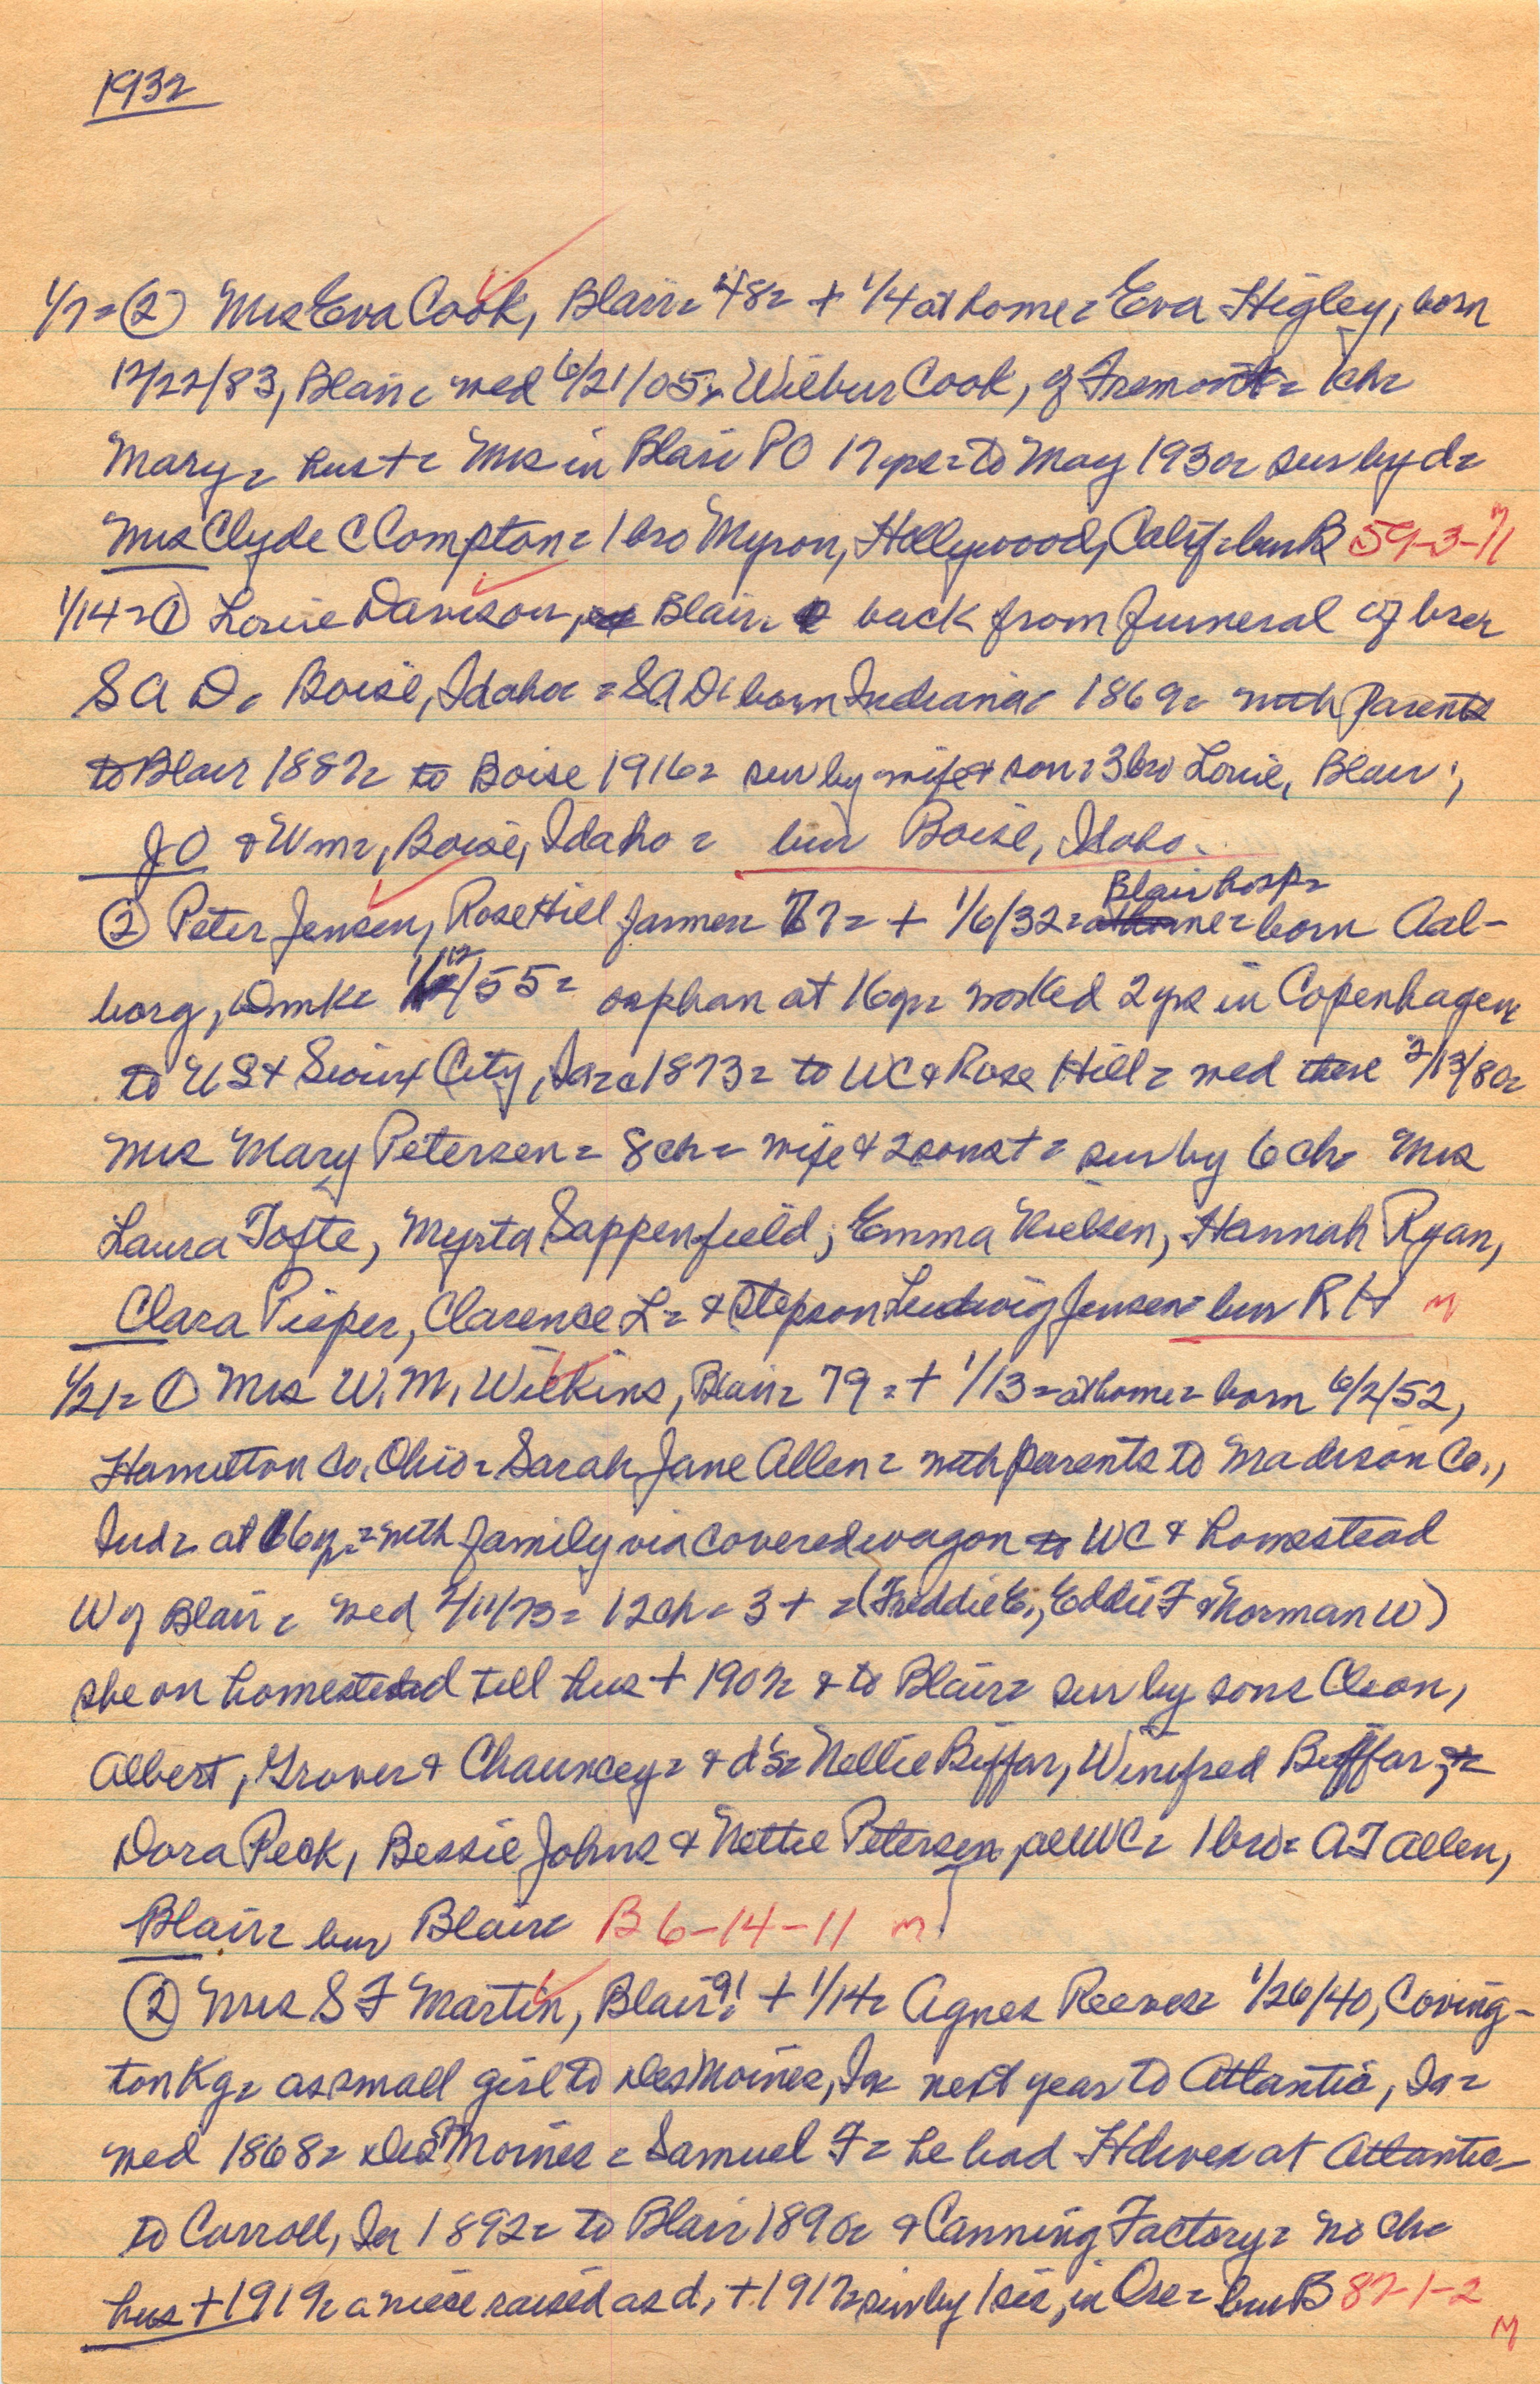 1932
1/7= (2) Mrs Eva Cook, Blair= 48= + 1/4 at home= Eva Higley, born
12/22/83, Blair= wed 6/21/05= Wilbur Cook, of Fremont= 1ch=
Mary= hus+= Mrs in Blair PO 17 yrs= to May 1930= sur by d=
Mrs Clyde C Compton= 1 bro Myron, Hollywood, Calif= bur B 59-3-11 M
1/14= (1) Louie Davison, Blair= back from funeral of bro=
S A D= Boise, Idaho= =S A D= born Indiana= 1869= with Parents
to Blair 1887= to Boise 1916= sur by wife & son= 3 bro Louie, Blair;
J O & Wm=, Boise, Idaho= bur Boise, Idaho.
(2) Peter Jensen, Rose Hill farmer= 77= + 1/6/32= Blair hosp= born Aal-
borg, Dmk= /55= orphan at 16 yr= worked 2 yrs in Copenhagen
to US & Sioux City, Ia= 1873= to WC & Rose Hill= wed there 2/13/80=
Mrs Mary Petersen= 8 ch= wife & 2 sons += sur by 6 ch= Mrs
Laura Tofte, Myrta Sappenfield, Emma Nielsen, Hannah Ryan,
Clara Pieper, Clarence L= & stepson Ludwig Jensen= bur R H M
1/21= (1) Mrs W. M. Wilkins, Blair= 79= + 1/13= at home= born 6/2/52,
Hamilton Co. Ohio= Sarah Jane Allen= with parents to Madison Co.,
Ind= at 16 yr= with family via covered wagon to WC & homestead
W of Blair= wed 2/11/73= 12 ch= 3 + =(Freddie E., Eddie F & Norman W)
she on homestead till hus + 1907= & to Blair= sur by sons Cleon,
Albert, Grover & Chauncey= & d's= Nellie Biffar, Winifred Biffar,
Dora Peck, Bessie Johns & Nettie Petersen, all WC= 1 bro= A T Allen,
Blair= bur Blair= B 6-14-11 M
(2) Mrs S F Martin, Blair= 91 + 1/14= Agnes Reeves= 1/26/40, Coving-
ton Ky= as small girl to Des Moines, Ia= next year to Atlantic, Ia=
wed 1868= Des Moines= Samuel F= he had Hdwe= at Atlantic=
to Carroll, Ia 1892= to Blair 1890= & Canning Factory= no ch=
hus + 1919= a niece raised as d, + 1917= sur by 1 sis, in Ore= bur B 87-1-2 M